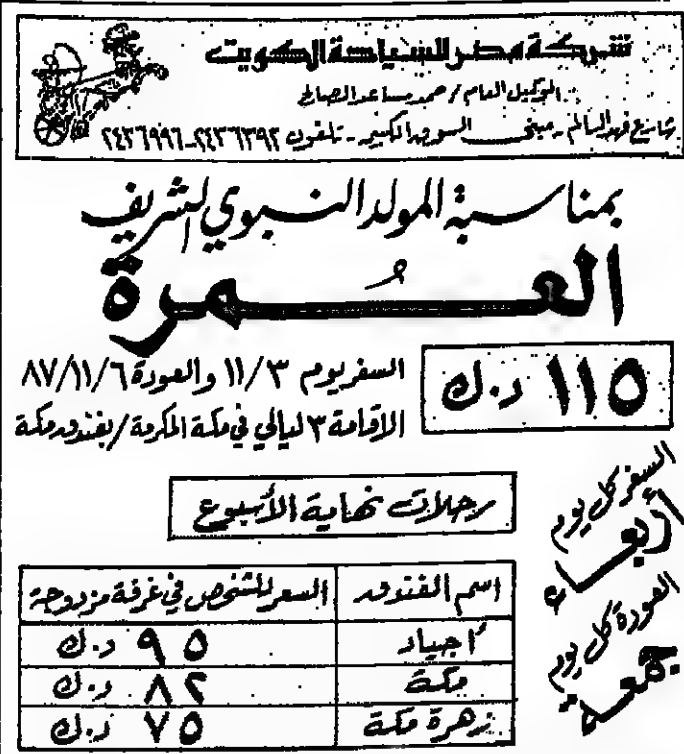 شركة مصر للسياحة الكويت
الوكيل العام / حمد مساعد الصالح
شارع فهد السالم - مبنى السوق الكبير - تلفون ٢٤٣٦٣٩٢-٢٤٣٦٩٩٦
بمناسبة المولد النبوي الشريف
العُمرة
١١٥ د.ك
السفر يوم ١١/٣ والعودة ٨٧/١١/٦
الاقامة ٣ ليالي في مكة المكرمة / بفندق مكة
رحلات نهاية الأسبوع
السفر كل يوم
أربعاء
العودة كل يوم
جمعة
اسم الفندق السعر للشخص في غرفة مزدوجة
أجياد ٩٥ د.ك
مكة ٨٢ د.ك
زهرة مكة ٧٥ د.ك